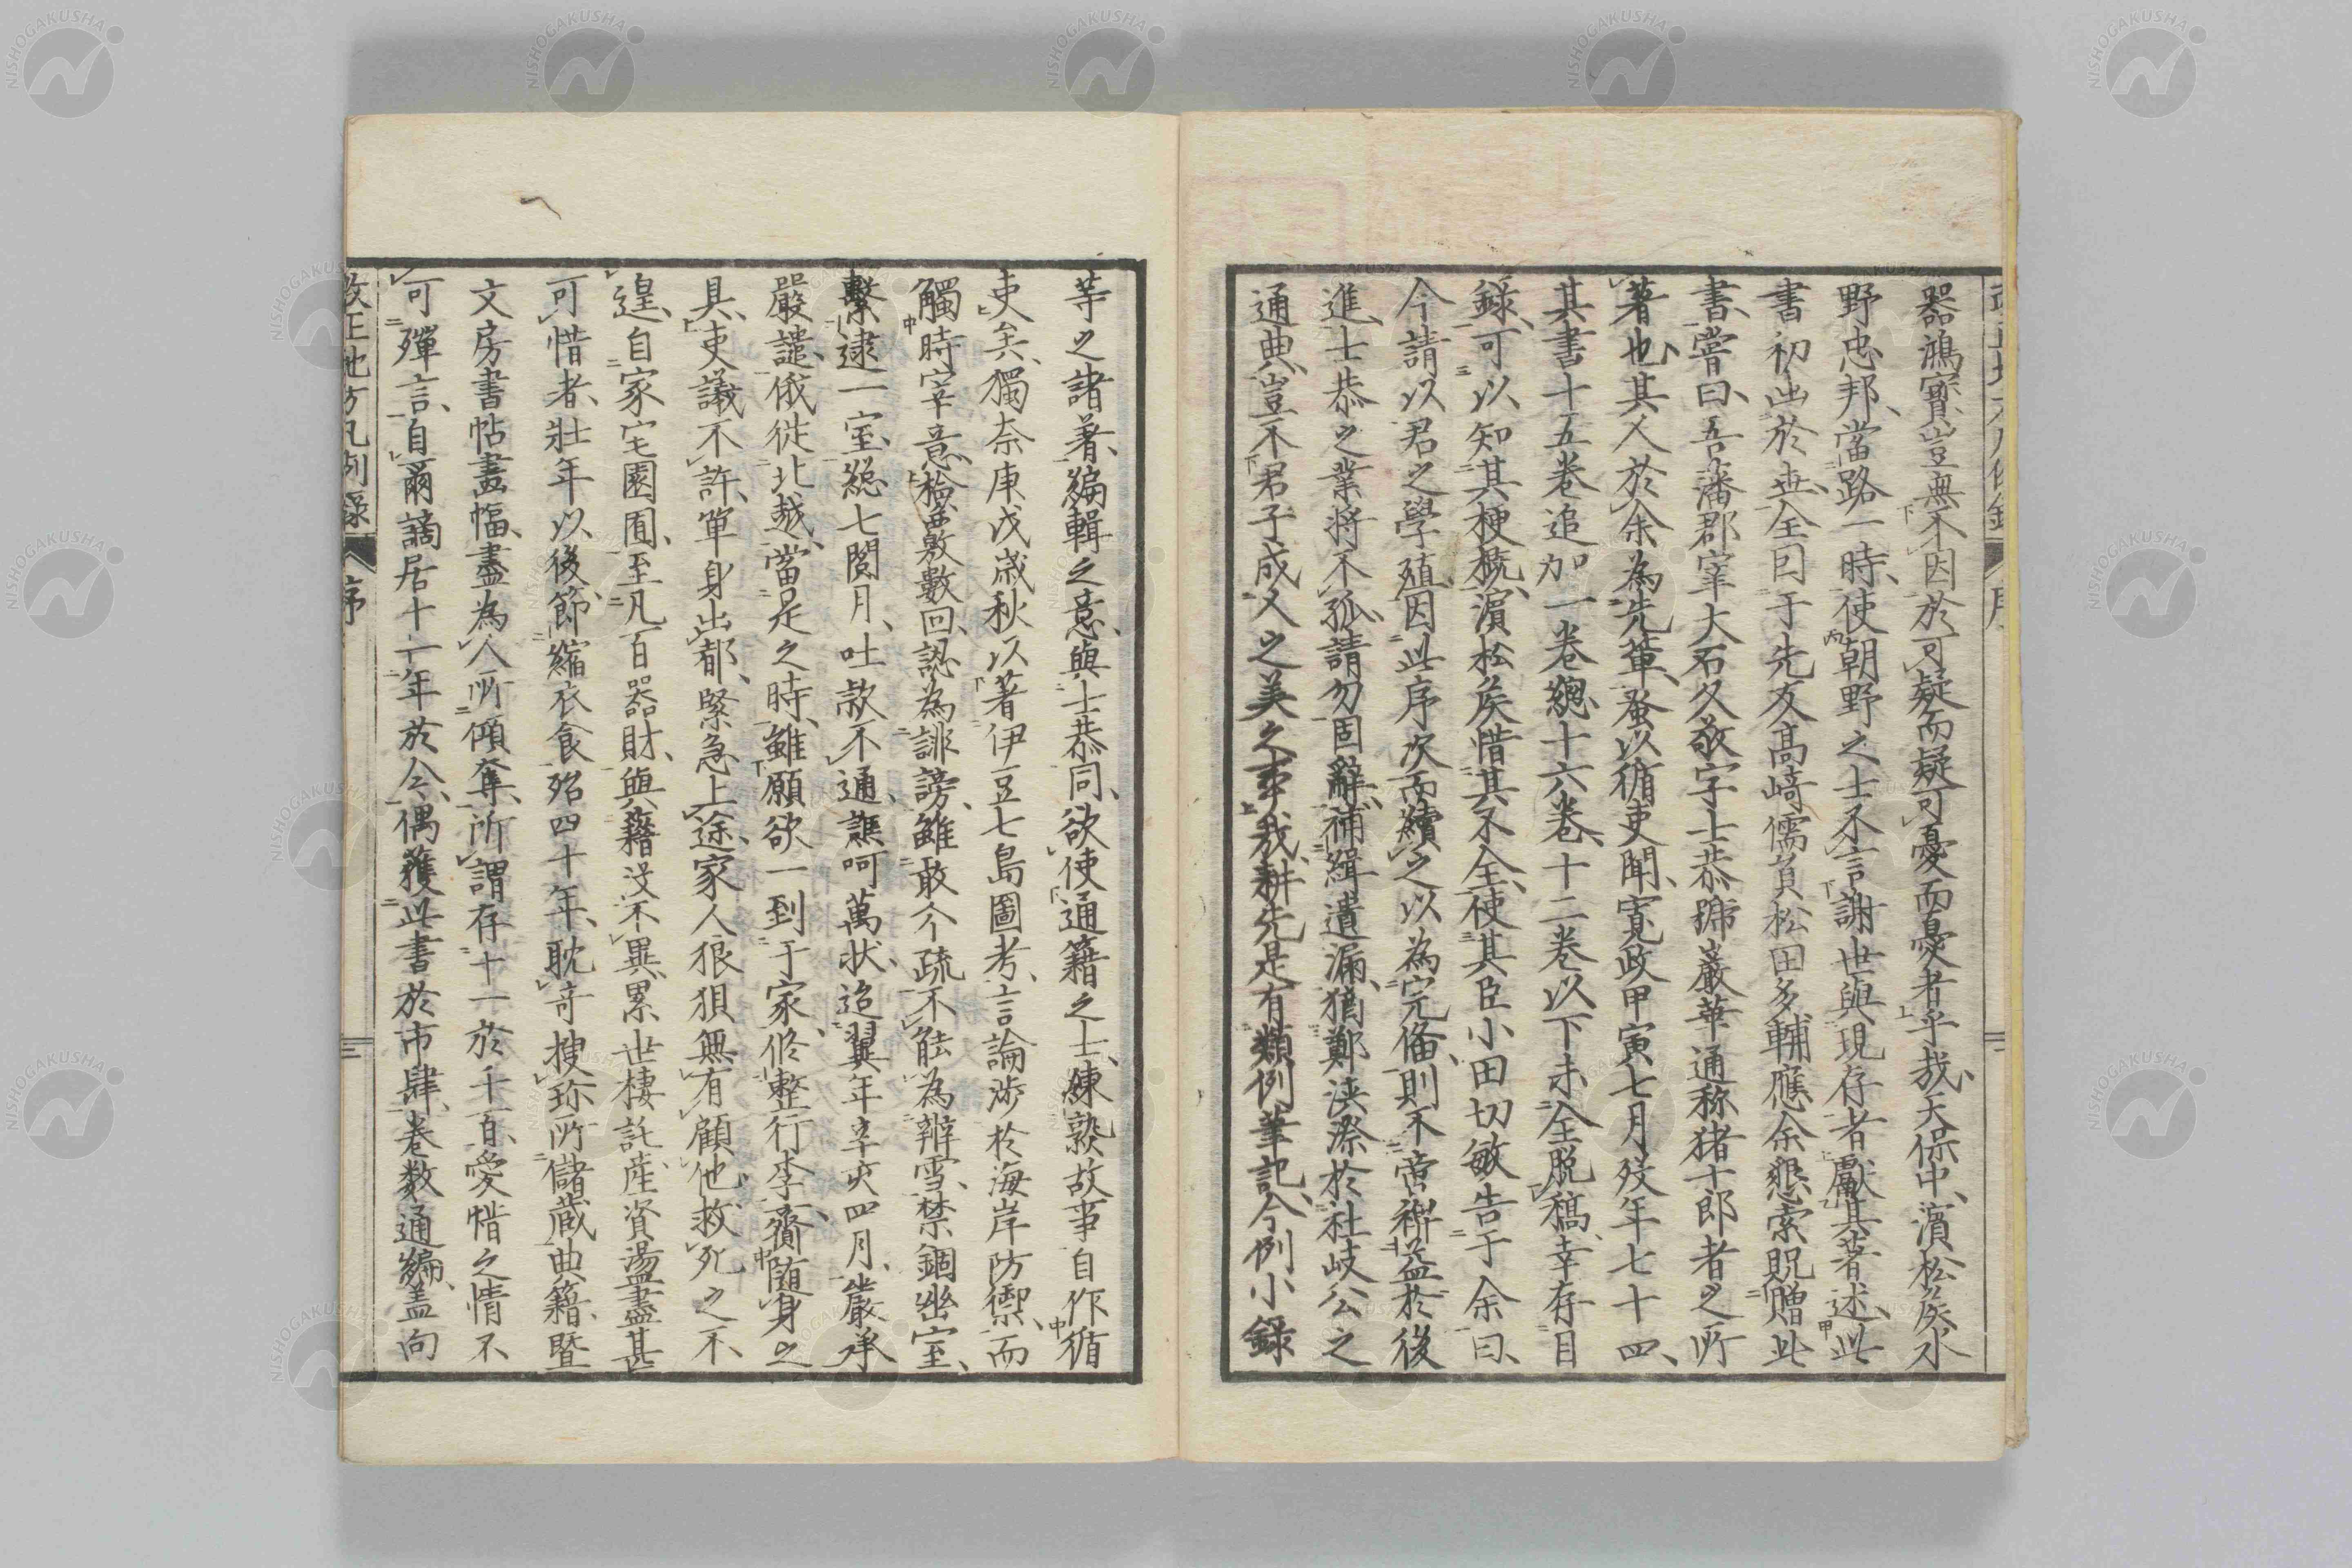 器鴻寳豈無不因於可疑而疑可憂而憂者乎哉天保中濱松矦水
野忠邦當路一時使朝野之士不言謝世與現存者獻其著述此
書初出於世全囙于先友高﨑儒負松田多輔應余懇索貺贈此
書嘗曰吾藩郡宰大石久敬字士恭號巖華通称猪十郎者之所
著也其人於余為先輩蚤以循吏聞寛政甲寅七月歿年七十四
其書十五卷追加一卷總十六卷十二卷以下未全脱稿幸存目
録可以知其梗槪濵松矦惜其不全使其臣小田切敏告于余曰
今請以君之學殖因此序次而續之以為完備則不啻裨益於後
進士恭之業将不孤請勿固辭補緝遺漏猶鄭浹漈於社岐公之
通典豈不君子成人之美之事哉耕先是有類例筆記令例小録
等之諸著編輯之意與士恭同欲使通籍之士練熟故事自作循
吏矣獨奈庚戌歳秋以著伊豆七島圖考言論渉於海岸防禦而
觸時宰意檢覈數回認為誹謗雖敢介疏不能為辨雪禁錮幽室
繫逮一室總七閲月吐款不通譙呵萬状迨翼年辛亥四月嚴承
嚴譴俄徙北越當是之時雖願欲一到于家修整行李齎随身之
具吏議不許單身出都緊急上途家人狼狽無有顧他救死之不
遑自家宅園囿至凡百器財與籍没不異累世棲託産資蕩盡甚
可惜者壯年以後節縮衣食殆四十年耽竒搜珎所儲蔵典籍曁
文房書帖畫幅盡為人所傾奪所謂存十一於千百愛惜之情不
可殫言自爾謫居十一年於今偶獲此書於市肆卷数通編盖向
改正地方凡例録 序 三
NISHOGAKUSHA